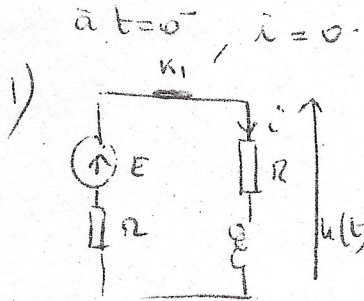 à t=0⁻, i=0.
1)
K₁
i
E
R
r
u(t)